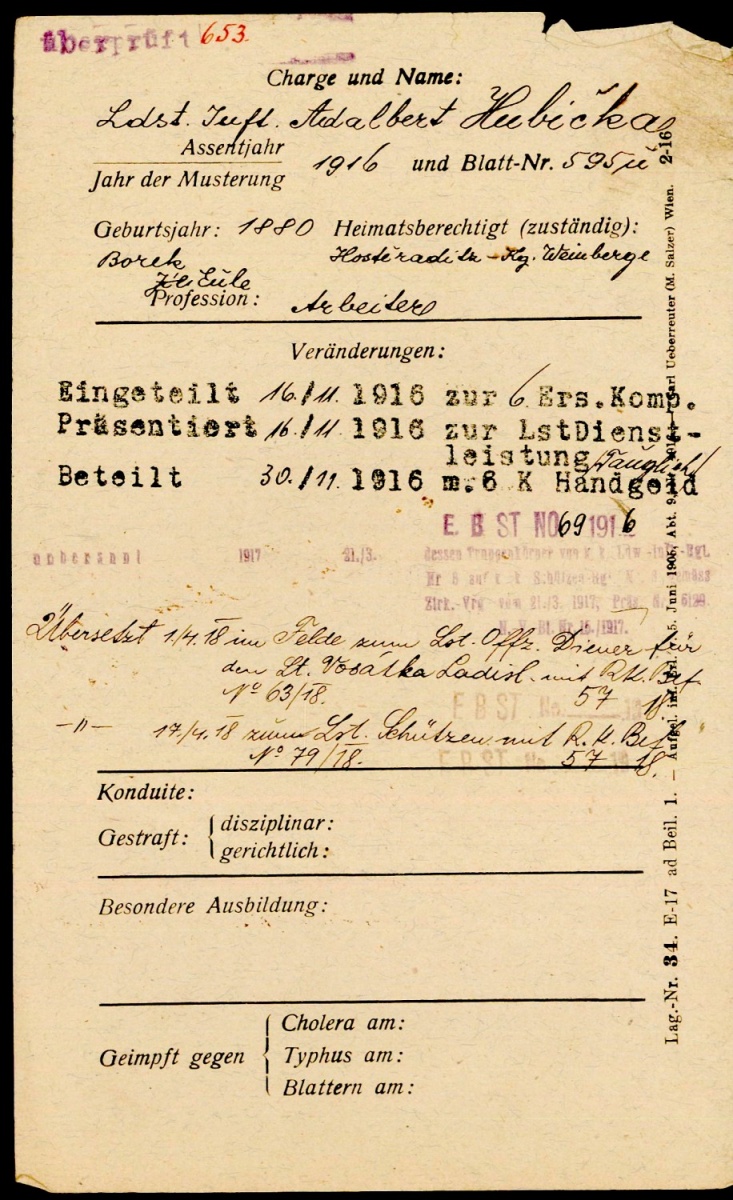 überprüft 653.
Charge und Name:
Ldst. Inft. Adalbert Hubička
Assentjahr
Jahr der Musterung 1916 und Blatt-Nr. 595
Geburtsjahr: 1880 Heimatsberechtigt (zuständig):
Borek Hostěraditz - Kg. Weinberge
Eule
Profession: Arbeiter
Veränderungen:
Eingeteilt 16./11. 1916 zur 6 Ers.Komp.
Präsentiert 16./11. 1916 zur LstDienst-
leistung (Tauglich)
Beteilt 30./11. 1916 m. 6 K Handgeld
E B ST NO 69 1916
1917 21./3.
Zirk.-Vrg vom 21./3. 1917,
Übersetzt 1/4.18 im Felde zum Lst. Offz. Diener für
den Lt. Vosátka Ladisl. mit Rk. Bef.
No 63/18. 57 18.
E B ST No.
-"- 17./4. 18 zum Lst. Schützen mit R. K. Bef.
No 79/18. 57 18.
E B ST No.
Konduite:
Gestraft: disziplinar:
gerichtlich:
Besondere Ausbildung:
Geimpft gegen Cholera am:
Typhus am:
Blattern am:
Lag.-Nr. 34. E-17 ad Beil. 1. — 5. Juni 1906, Abt. Karl Ueberreuter (M. Salzer) Wien. 2-16